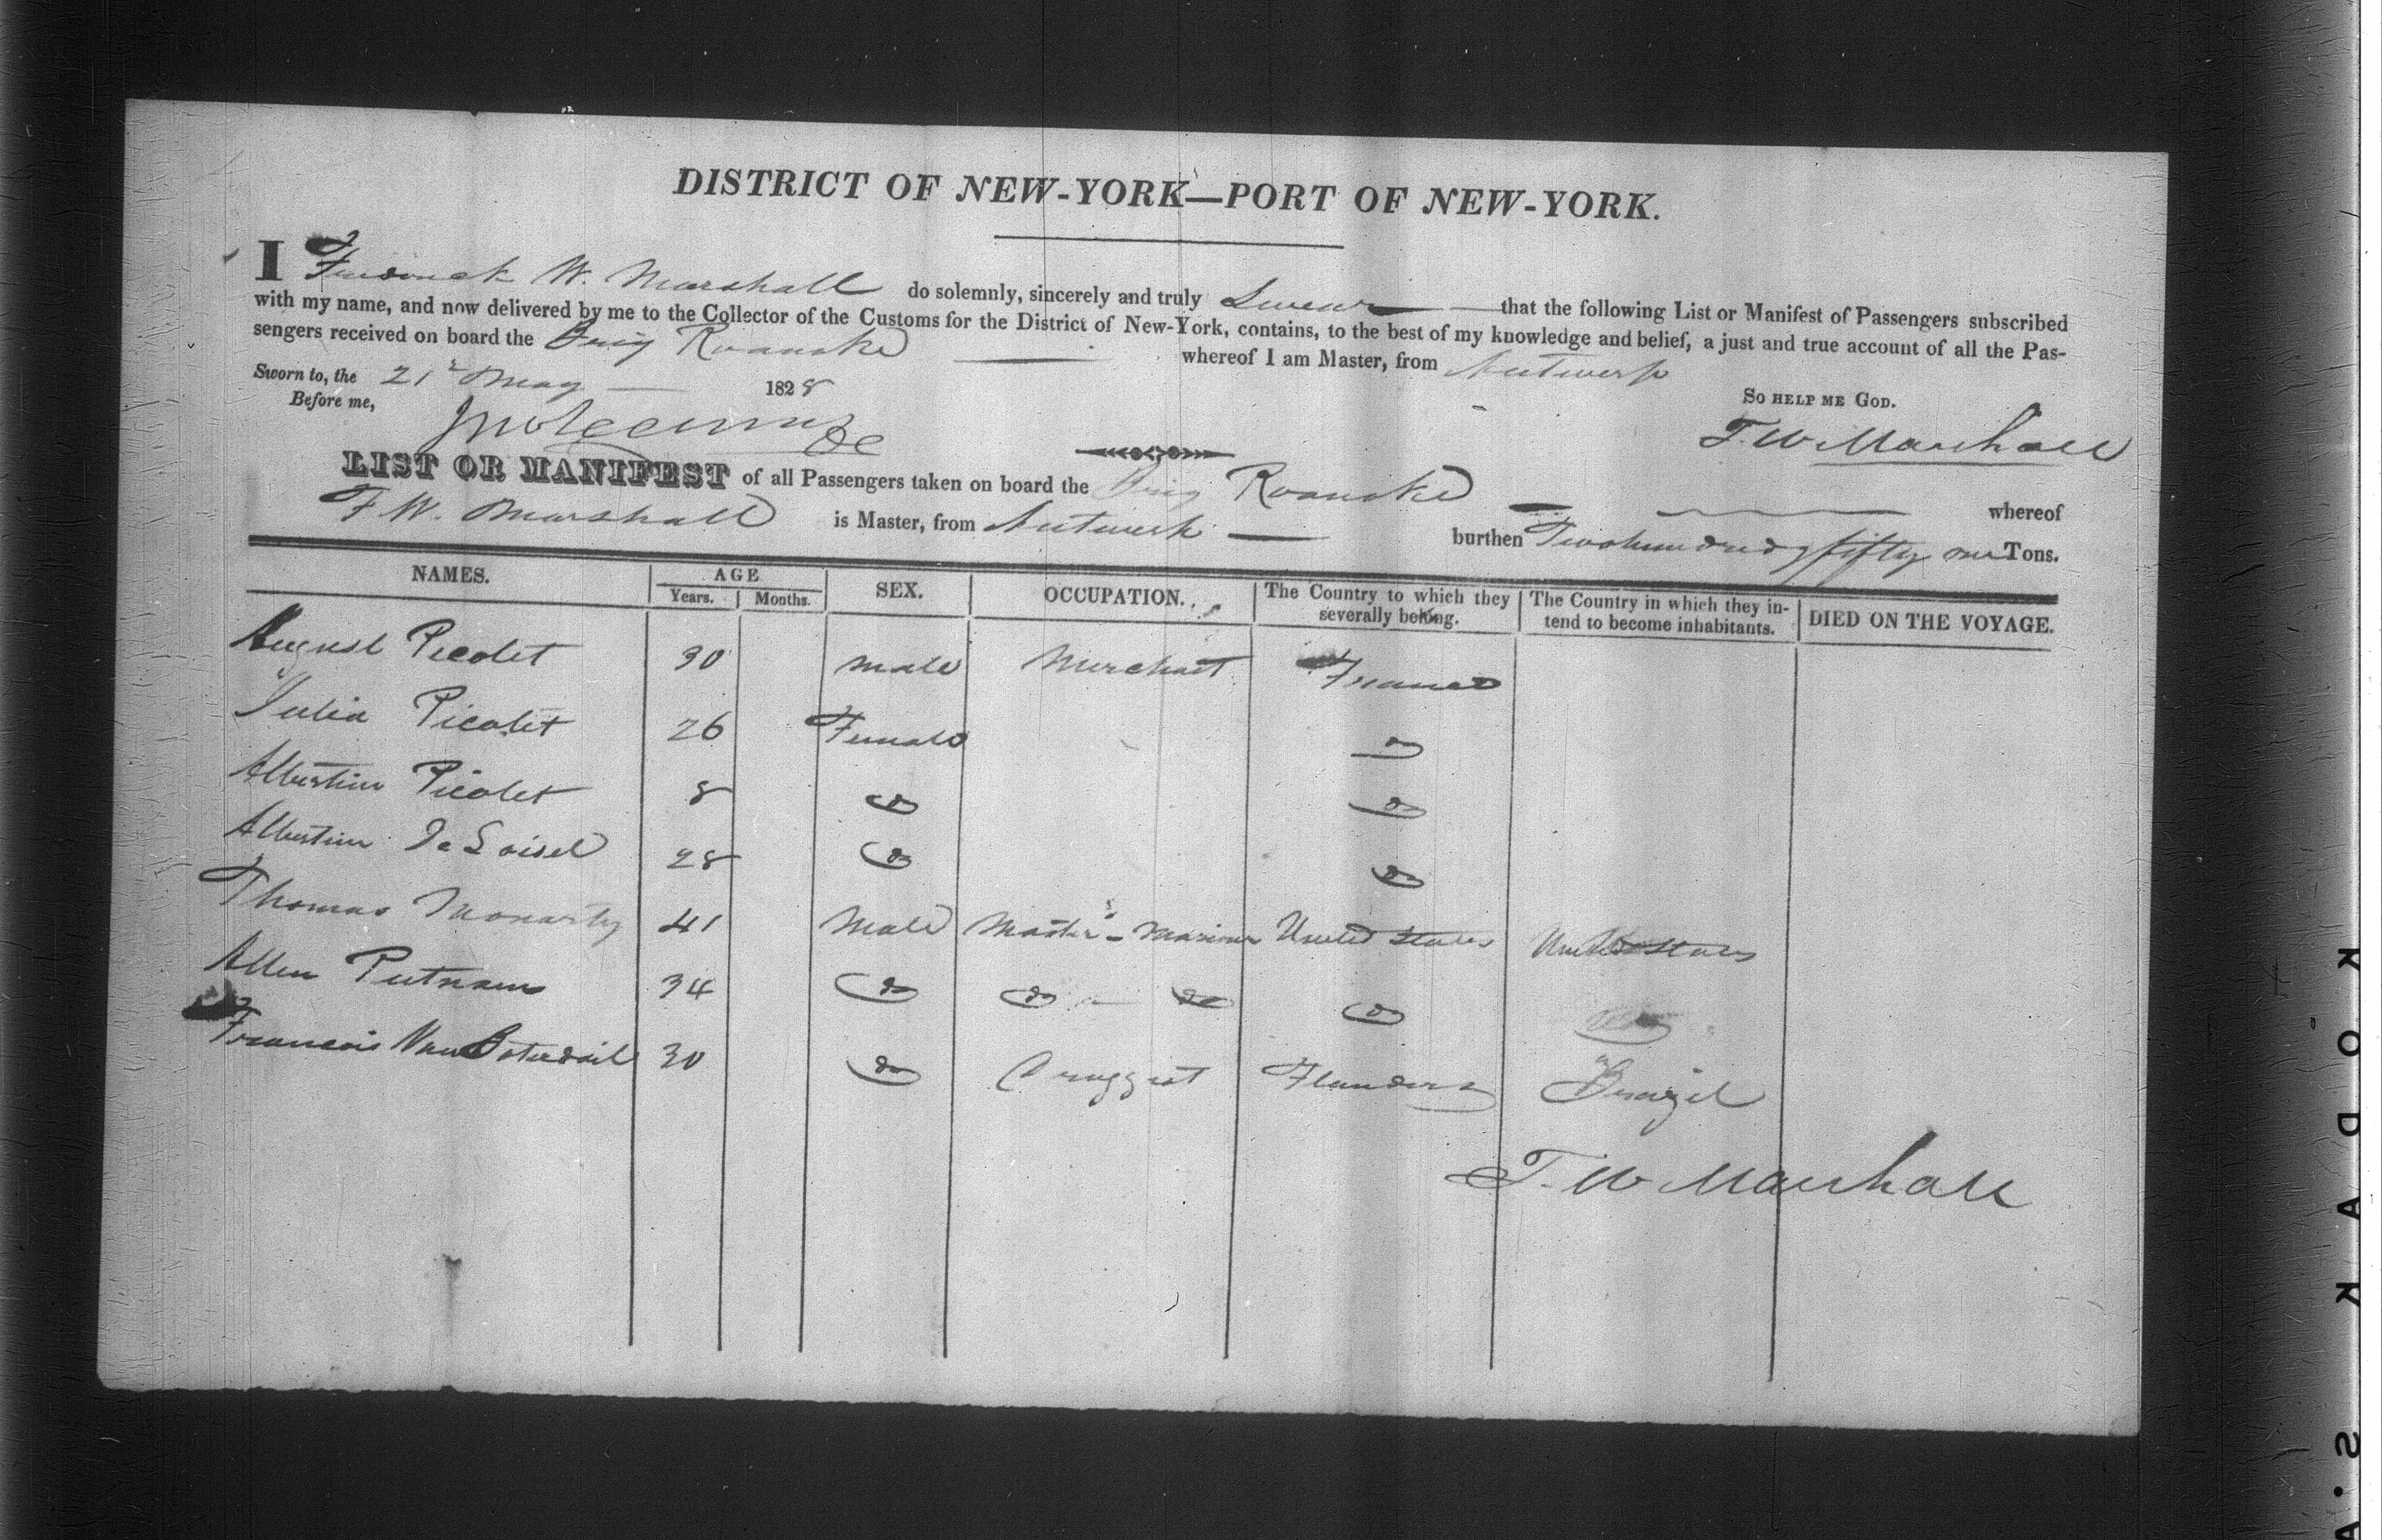 DISTRICT OF NEW-YORK—PORT OF NEW-YORK.
I Frederick W. Marshall do solemnly, sincerely and truly Swear that the following List or Manifest of Passengers subscribed
with my name, and now delivered by me to the Collector of the Customs for the District of New-York, contains, to the best of my knowledge and belief, a just and true account of all the Pas-
sengers received on board the Brig Roanoke whereof I am Master, from Antwerp
Sworn to, the 21st May 1828 So HELP ME GOD.
Before me,
F. W Marshall
LIST OR MANIFEST of all Passengers taken on board the Brig Roanoke whereof
F. W. Marshall is Master, from Antwerp burthen Two hundred & fifty one Tons.
NAMES. AGE Years. Months. SEX. OCCUPATION. The Country to which they severally belong. The Country in which they in-tend to become inhabitants. DIED ON THE VOYAGE.
August Picolet 30 male Merchant France
Julia Picolet 26 Female do
Albertine Picolet 8 do do
Albertine De Loisel 28 do do
Thomas Moriarty 41 Male Master-Mariner United States United States
Allen Putnam 34 do do do do
Francois Van 30 do Druggist Flanders Brazil
F. W Marshall
KODAK S.A